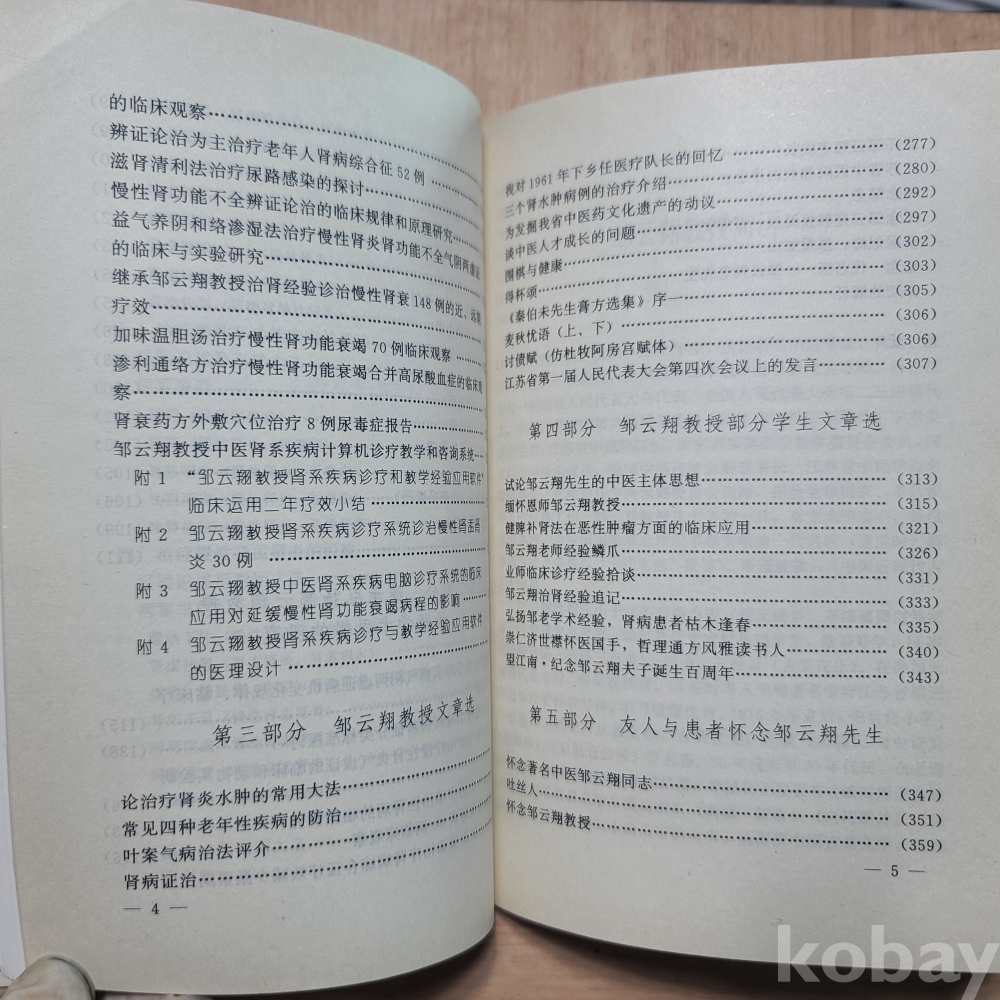 的临床观察………………
辨证论治为主治疗老年人肾病综合征52例
滋肾清利法治疗尿路感染的探讨………………
慢性肾功能不全辨证论治的临床规律和原理研究………
益气养阴和络渗湿法治疗慢性肾炎肾功能不全气阴两虚证
的临床与实验研究………………
继承邹云翔教授治肾经验诊治慢性肾衰148例的近、远期
疗效………………
加味温胆汤治疗慢性肾功能衰竭70例临床观察………
渗利通络方治疗慢性肾功能衰竭合并高尿酸血症的临床观
察………………
肾衰药方外敷穴位治疗8例尿毒症报告………………
邹云翔教授中医肾系疾病计算机诊疗教学和咨询系统……
附1 “邹云翔教授肾系疾病诊疗和教学经验应用软件”
临床运用二年疗效小结………………
附2 邹云翔教授肾系疾病诊疗系统诊治慢性肾盂肾
炎30例………………
附3 邹云翔教授中医肾系疾病电脑诊疗系统的临床
应用对延缓慢性肾功能衰竭病程的影响………
附4 邹云翔教授肾系疾病诊疗与教学经验应用软件
的医理设计………………
第三部分 邹云翔教授文章选
论治疗肾炎水肿的常用大法………………
常见四种老年性疾病的防治………………
叶案气病治法评介………………
肾病证治………………
— 4 —
我对1961年下乡任医疗队长的回忆………………(277)
三个肾水肿病例的治疗介绍………………(280)
为发掘我省中医药文化遗产的动议………………(292)
谈中医人才成长的问题………………(297)
围棋与健康………………(302)
得杯颂………………(303)
《秦伯未先生膏方选集》序一………………(305)
麦秋忧语(上、下)………………(306)
讨债赋(仿杜牧阿房宫赋体)………………(306)
江苏省第一届人民代表大会第四次会议上的发言………(307)
第四部分 邹云翔教授部分学生文章选
试论邹云翔先生的中医主体思想………………(313)
缅怀恩师邹云翔教授………………(315)
健脾补肾法在恶性肿瘤方面的临床应用………………(321)
邹云翔老师经验鳞爪………………(326)
业师临床诊疗经验拾谈………………(331)
邹云翔治肾经验追记………………(333)
弘扬邹老学术经验，肾病患者枯木逢春………………(335)
崇仁济世襟怀医国手，哲理通方风雅读书人………………(340)
望江南·纪念邹云翔夫子诞生百周年………………(343)
第五部分 友人与患者怀念邹云翔先生
怀念著名中医邹云翔同志………………(347)
吐丝人………………(351)
怀念邹云翔教授………………(359)
— 5 —
kobay